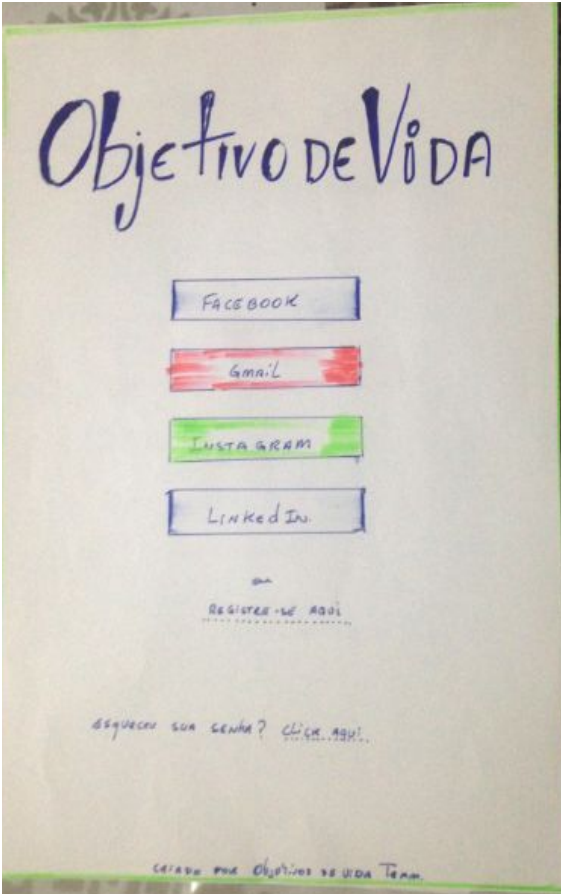 Objetivo de Vida
Facebook
Gmail
Instagram
LinkedIn
ou
Registre-se aqui
Esqueceu sua senha? Click aqui.
Criado por Objetivos de Vida Team.